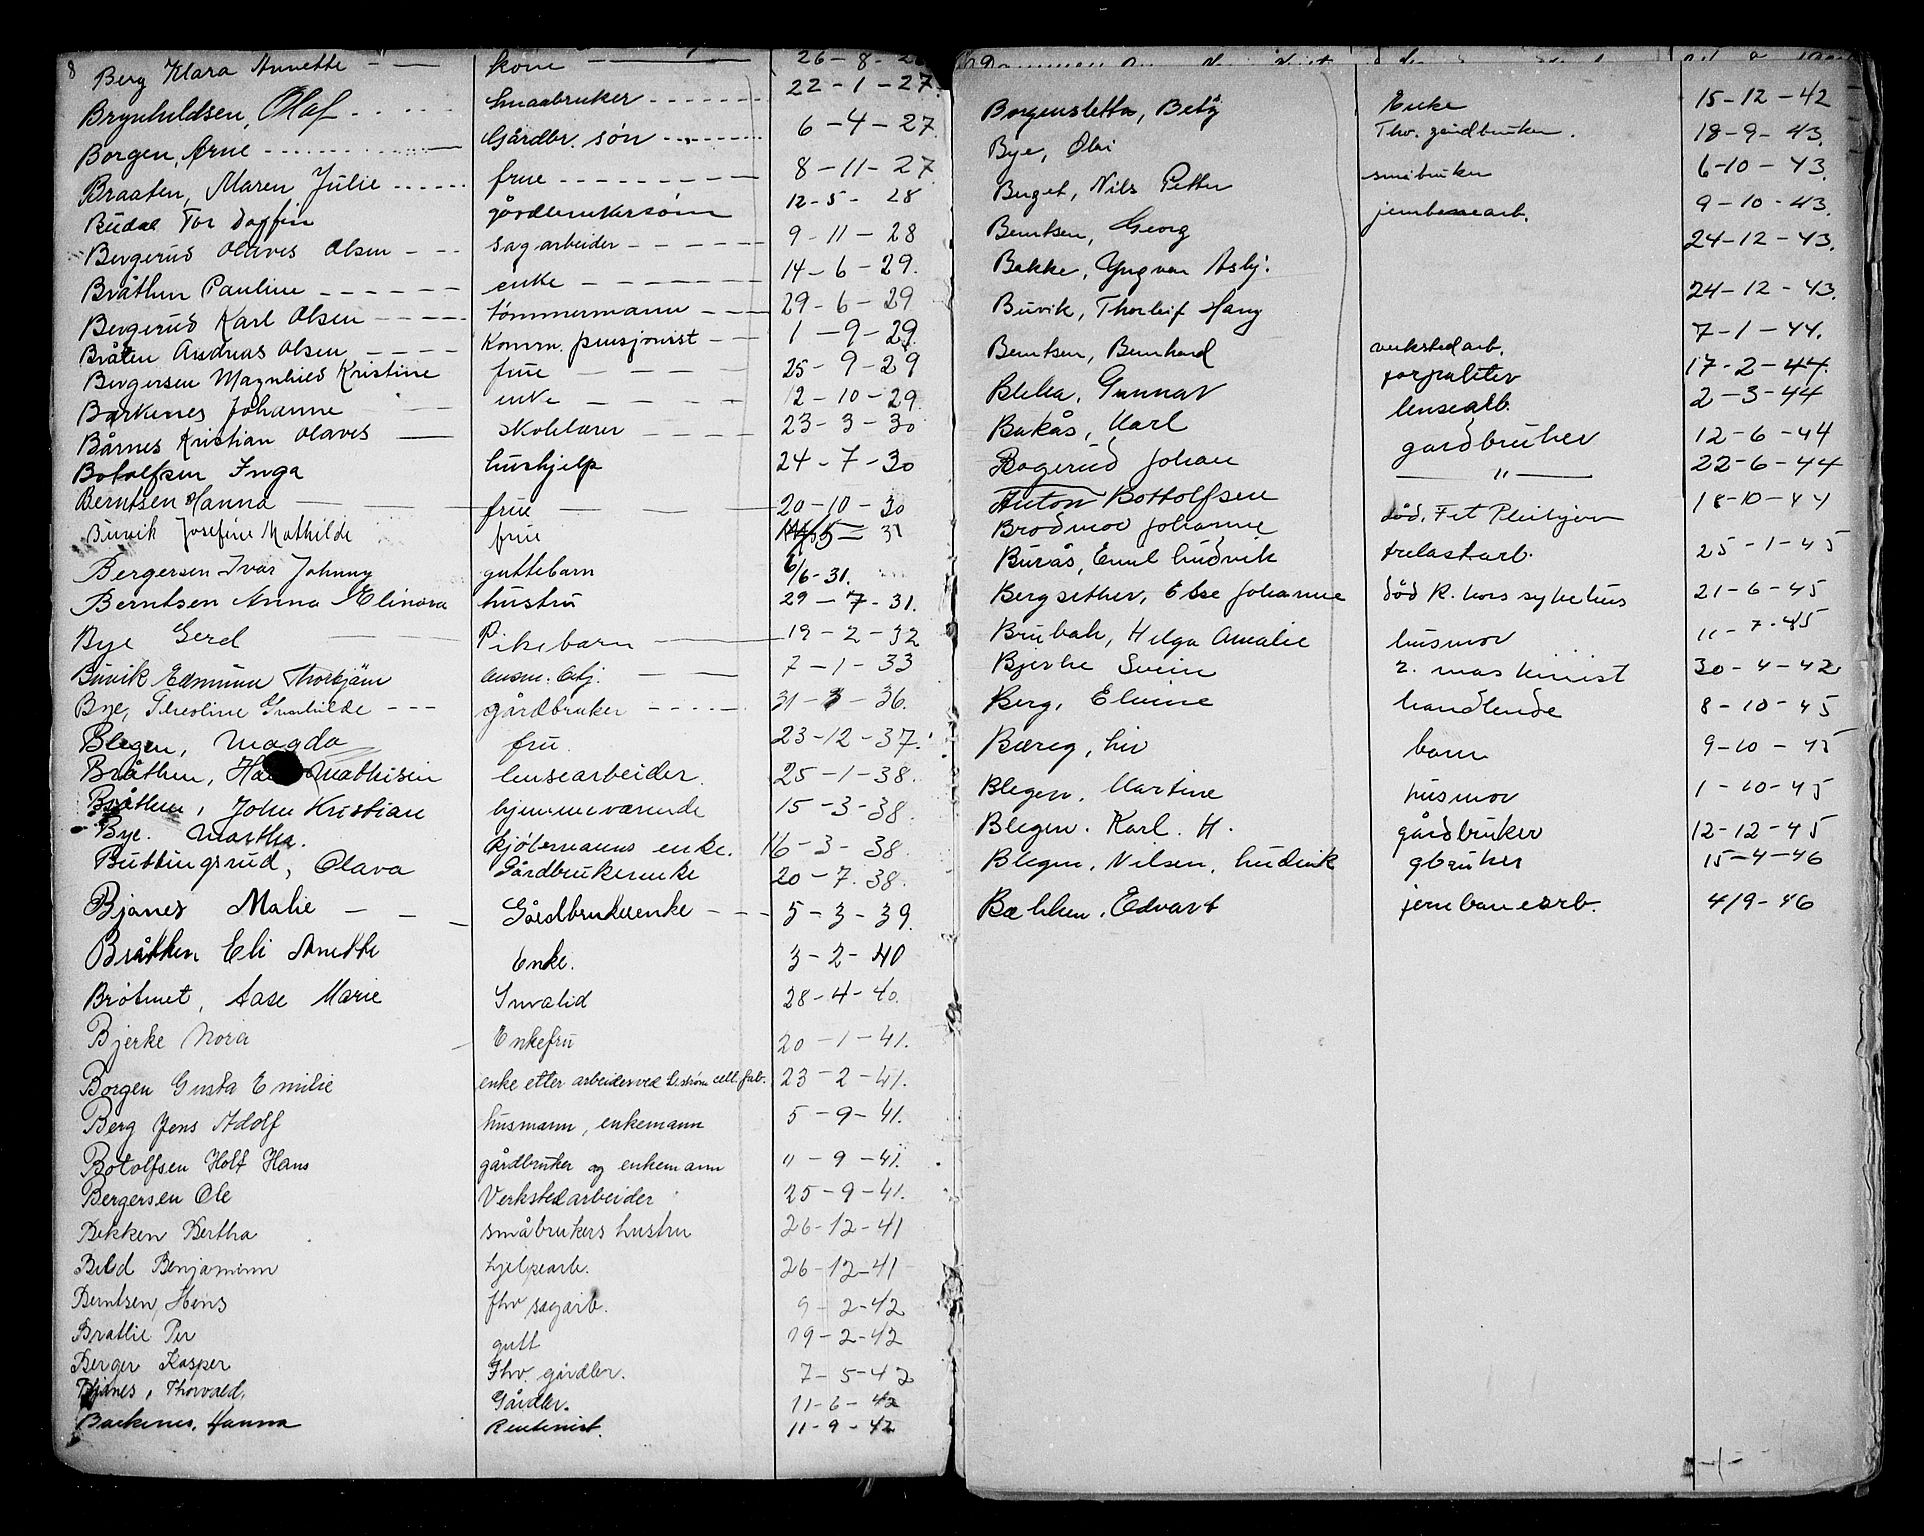 8
Berg Klara Annette — kone — 26-8-
Brynhildsen, Olaf smaabruker 22-1-27
Borgen, Arne Gårdbr. søn 6-4-27
Braaten, Maren Julie frue 8-11-27
Budal Tor Dagfin gårdbrukersønn 12-5-28
Bergerud Olaves Olsen sagarbeider 9-11-28
Bråthen Pauline enke 14-6-29
Bergerud Karl Olsen tømmermann 29-6-29
Bråten Andreas Olsen Komm. pensjonist 1-9-29
Bergersen Magnhild Kristine frue 25-9-29
Barkenes Johanne enke 12-10-29
Bårnes Kristian Olaves skolelærer 23-3-30
Botolfsen Inga hushjelp 24-7-30
Berntsen Hanna frue 20-10-30
Buvik Josefine Mathilde frue 5-31
Bergersen Ivar Johnny guttebarn 6/6-31.
Berntsen Anna Elinora hustru 29-7-31.
Bye Gerd Pikebarn 19-2-32
Buvik Edmunn Thorbjørn 7-1-33
Bye, Theoline Gunhilde gårdbruker 31-3-36.
Blegen, Magda fru 23-12-37.
Bråthen, Mathisen lensearbeider 25-1-38.
Bråthen, John Kristian hjemmeværende 15-3-38.
Bye. Martha. kjøbmanns enke. 16-3-38
Buttingsrud, Olava Gårdbrukerenke 20-7-38.
Bjanes Malie Gårdbrukerenke 5-3-39.
Bråthen Eli Anette Enke. 3-2-40
Brøtmet, Aase Marie Invalid 28-4-40.
Bjerke Nora Enkefru 20-1-41.
Borgen Gusta Emilie enke etter arbeider ved cell. fab. 23-2-41.
Berg Jens Adolf husmann, enkemann 5-9-41.
Botolfsen Holf Hans gårdbruker og enkemann "-9-41.
Bergersen Ole Verkstedarbeider 25-9-41.
Bekken Bertha småbrukers hustru 26-12-41
Bild Benjaminn hjelpearb. 26-12-41
Berntsen, Hans fhv sagarb. 9-2-42
Bratlie Per gutt 19-2-42
Berger Kasper Fhv. gårdbr. 7-5-42
Bjanes, Thorvald. Gårdbr. 11-6-42
Barkenes, Hanna Rentenist. 11-9-42
Borgensletta, Betzy Enke 15-12-42
Bye, Olai Fhv. gardbruker. 18-9-43.
Berget, Nils Petter småbruker 6-10-43.
Berntsen, Georg jernbanearb. 9-10-43.
Bakke, Yngvar Asbj. 24-12-43.
Buvik, Thorleif Hang 24-12-43.
Berntsen, Bernhard verkstedarb. 7-1-44.
Bleka, Gunnar forpakter 17-2-44.
Bakås, Karl lensearb. 2-3-44
Bogerud Johan gardbruker 12-6-44
Anton Bottolfsen — " — 22-6-44
Brodmoe Johanne død. Fet Pleihjem 18-10-44
Burås, Emil Ludvik trelastarb. 25-1-45
Bergsether, Else Johanne død R. kors sykehus 21-6-45
Brubak, Helga Amalie husmor 11-7-45
Bjerke Svein 2. maskinist 30-4-42
Berg, Elvine handlende 8-10-45
Bærég, Liv barn 9-10-45
Blegen, Martine husmor 1-10-45
Blegen. Karl. H. gårdbruker 12-12-45
Blegen, Nilsen, Ludvik gbruker 15-4-46
Bakken, Edvart jernbanearb. 4/9-46